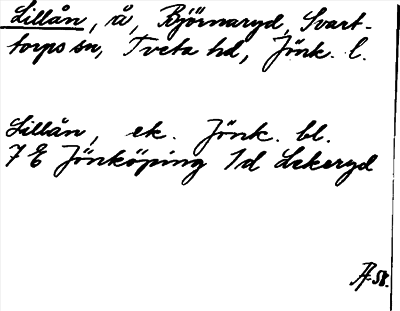 Lillån, å, Björnaryd, Svart-
torps sn, Tveta hd, Jönk. l.
Lillån, ek. Jönk. bl.
7 E Jönköping 1d Lekeryd